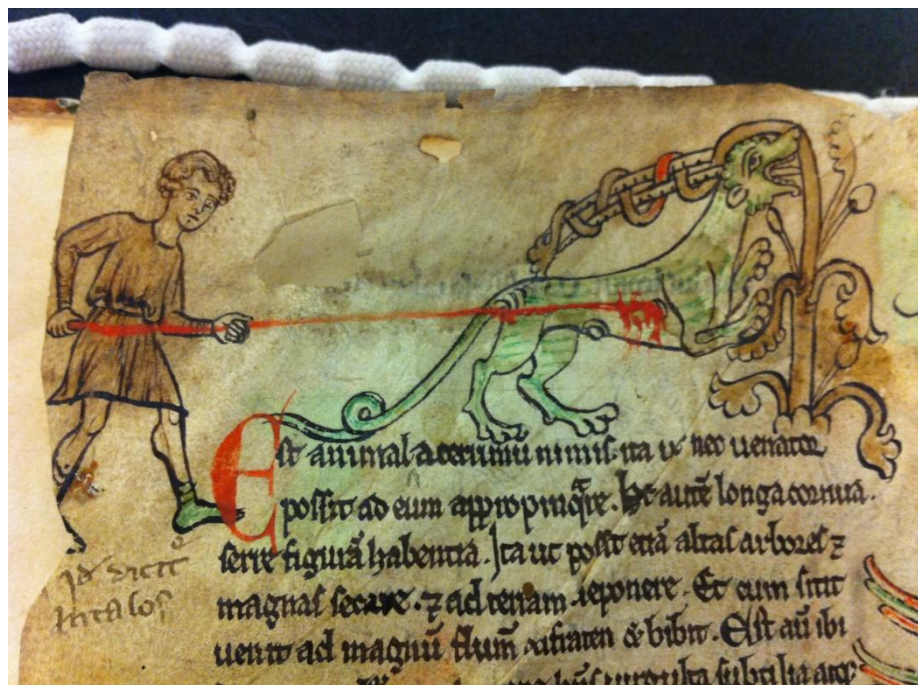 Est animal acerrimū nimis. ita ut nec uenator
possit ad eum appropinq̃re. Hͨ autē longa cornua.
serre figurā habentia. Ita ut possit etiā altas arbores ⁊
magnas secare. ⁊ ad terram deponere. Et cum sitit
uenit ad magnū flum̄ eufraten & bibit. Est aū ibi
uirgulta subtilia atq;